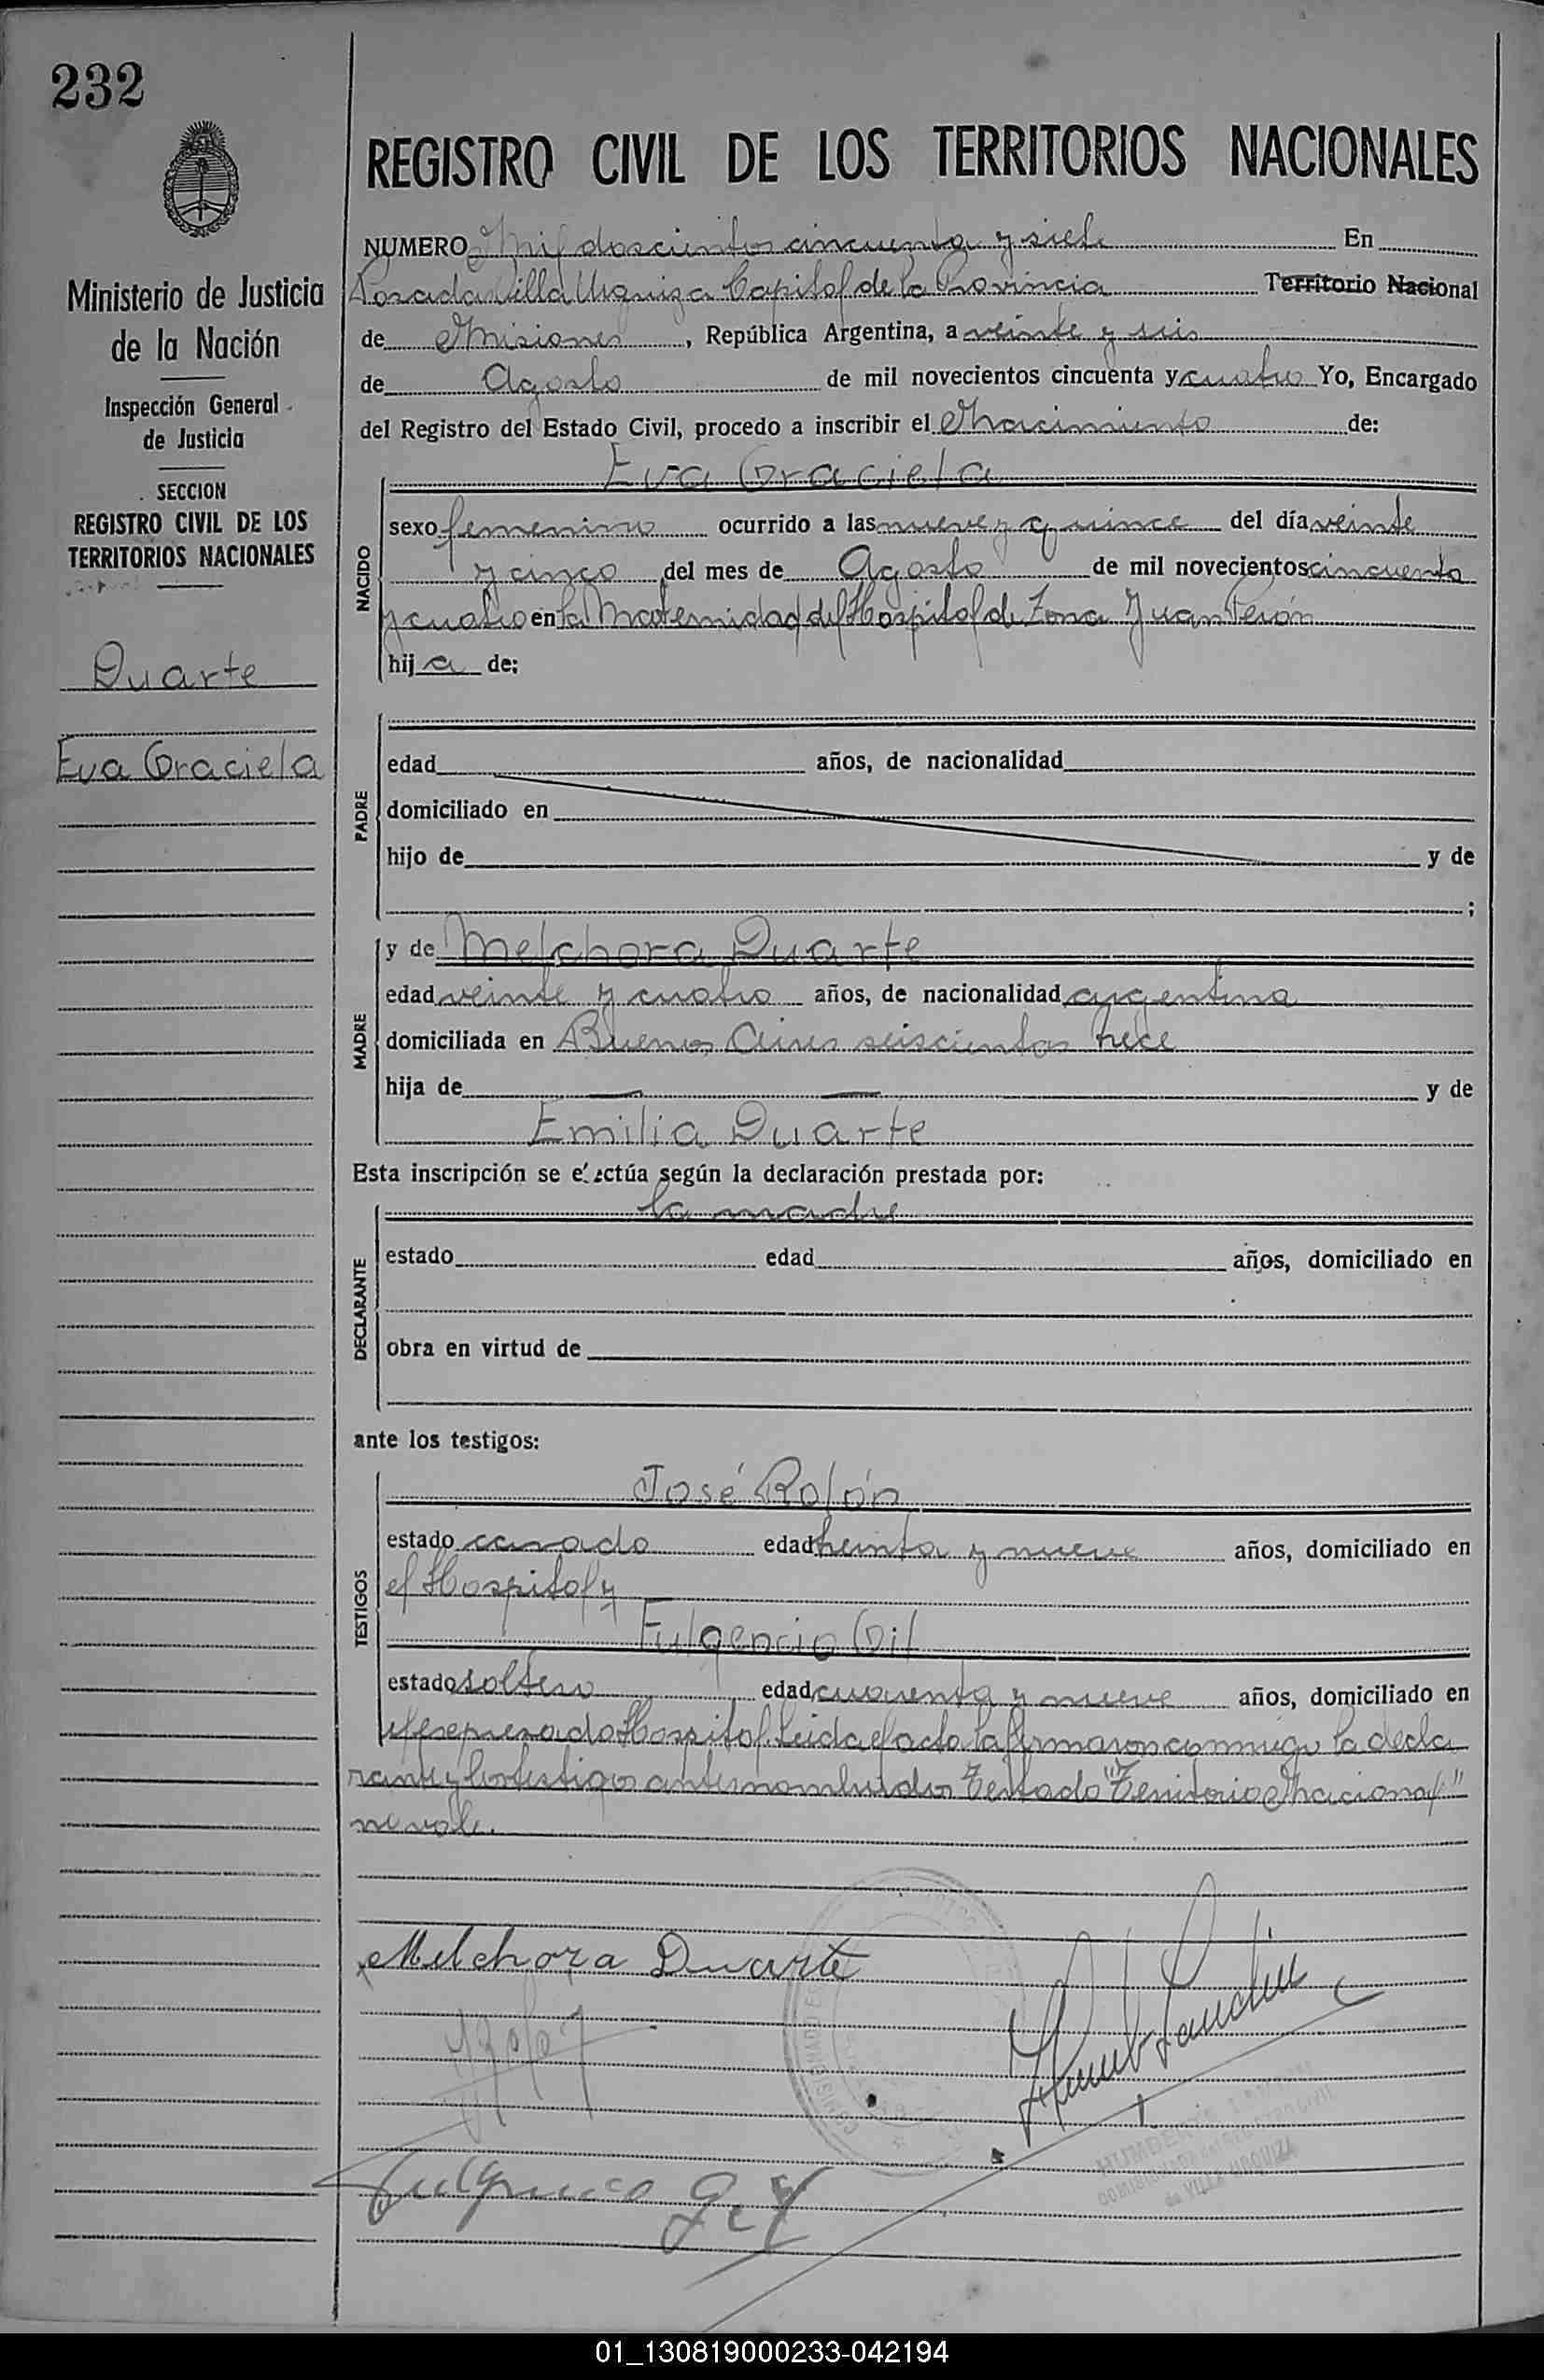 232
Ministerio de Justicia
de la Nación
Inspección General
de Justicia
SECCION
REGISTRO CIVIL DE LOS
TERRITORIOS NACIONALES
Duarte
Eva Graciela
REGISTRO CIVIL DE LOS TERRITORIOS NACIONALES
NUMERO Mil doscientos cincuenta y siete En
Posadas Villa Urquiza Capital de la Provincia Territorio Nacional
de Misiones, República Argentina, a veinte y seis
de Agosto de mil novecientos cincuenta y cuatro Yo, Encargado
del Registro del Estado Civil, procedo a inscribir el Nacimiento de:
Eva Graciela
NACIDO
sexo femenino ocurrido a las nueve y quince del día veinte
y cinco del mes de Agosto de mil novecientos cincuenta
y cuatro en la Maternidad del Hospital de Zona Juan Perón
hija de:
PADRE
edad años, de nacionalidad
domiciliado en
hijo de y de
;
MADRE
y de Melchora Duarte
edad veinte y cuatro años, de nacionalidad argentina
domiciliada en Buenos Aires seiscientos trece
hija de — — y de
Emilia Duarte
Esta inscripción se efectúa según la declaración prestada por:
la madre
DECLARANTE
estado edad años, domiciliado en
obra en virtud de
ante los testigos:
TESTIGOS
José Rolón
estado casado edad treinta y nueve años, domiciliado en
el Hospital y
Fulgencio Gil
estado soltero edad cuarenta y nueve años, domiciliado en
el expresado Hospital. Leida el acta la firmaron conmigo la decla
rante y los testigos antes nombrados Testado "Territorio Nacional"
no vale.
Melchora Duarte
Fulgencio Gil
de VILLA URQUIZA
01_130819000233-042194